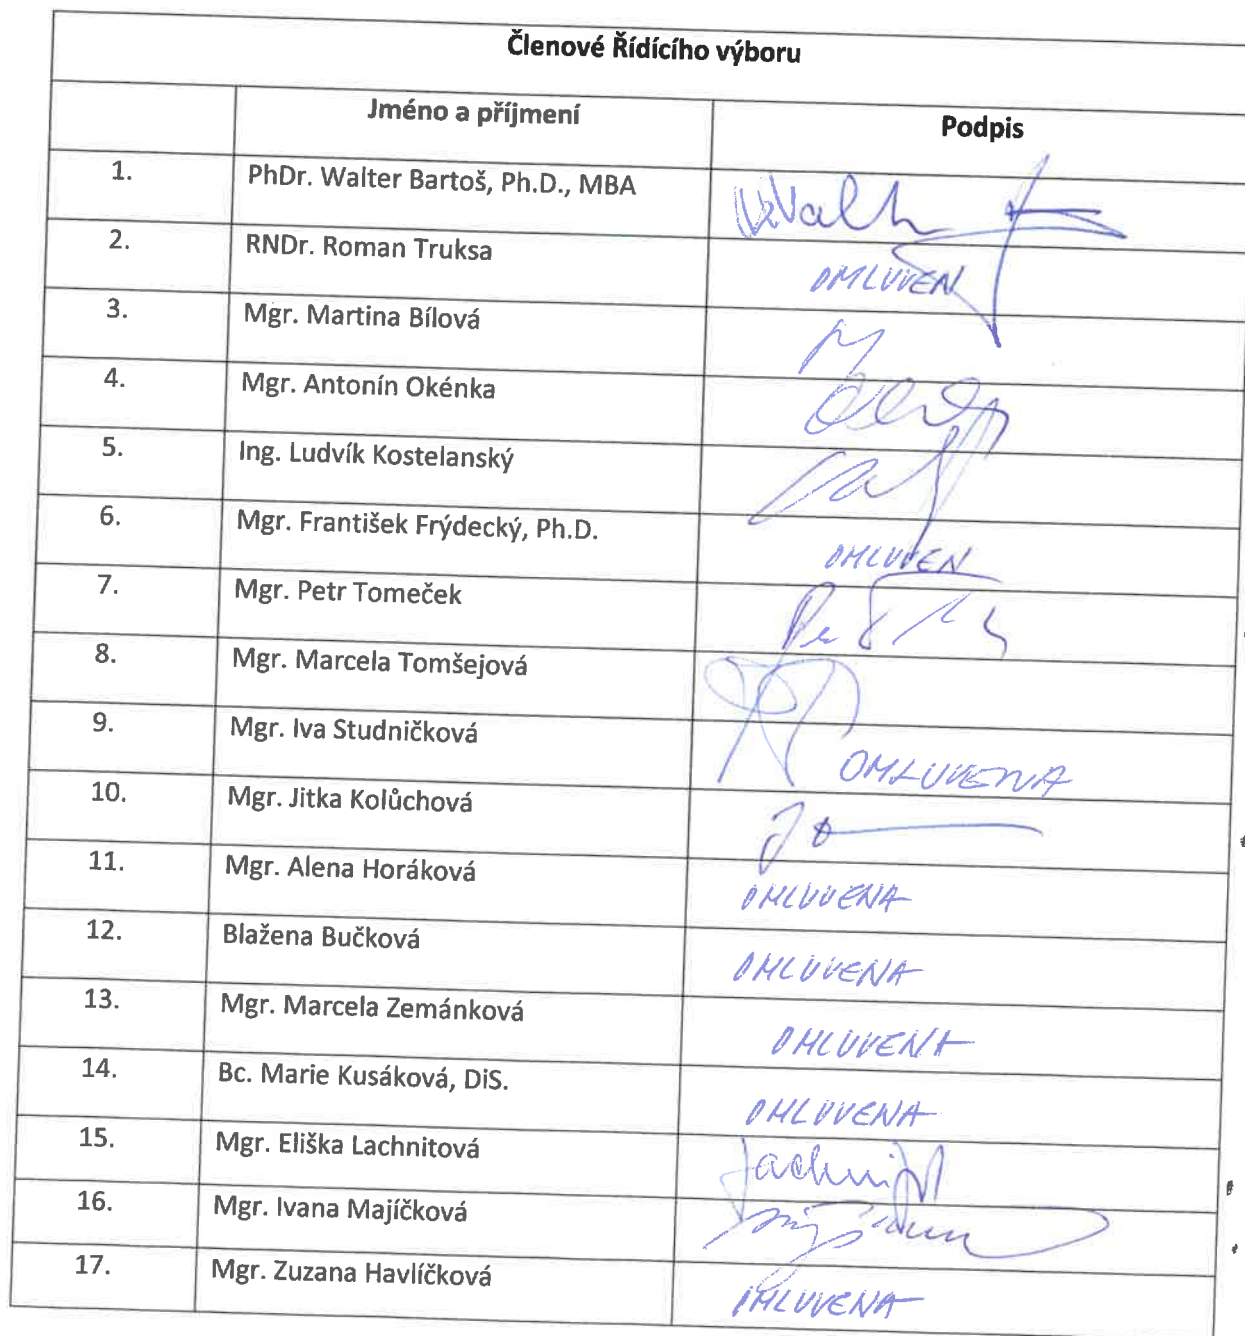 Členové Řídícího výboru
Jméno a příjmení Podpis
1. PhDr. Walter Bartoš, Ph.D., MBA
2. RNDr. Roman Truksa OMLUVEN
3. Mgr. Martina Bílová
4. Mgr. Antonín Okénka
5. Ing. Ludvík Kostelanský
6. Mgr. František Frýdecký, Ph.D. OMLUVEN
7. Mgr. Petr Tomeček
8. Mgr. Marcela Tomšejová
9. Mgr. Iva Studničková OMLUVENA
10. Mgr. Jitka Kolůchová
11. Mgr. Alena Horáková OMLUVENA
12. Blažena Bučková OMLUVENA
13. Mgr. Marcela Zemánková OMLUVENA
14. Bc. Marie Kusáková, DiS. OMLUVENA
15. Mgr. Eliška Lachnitová
16. Mgr. Ivana Majíčková
17. Mgr. Zuzana Havlíčková OMLUVENA